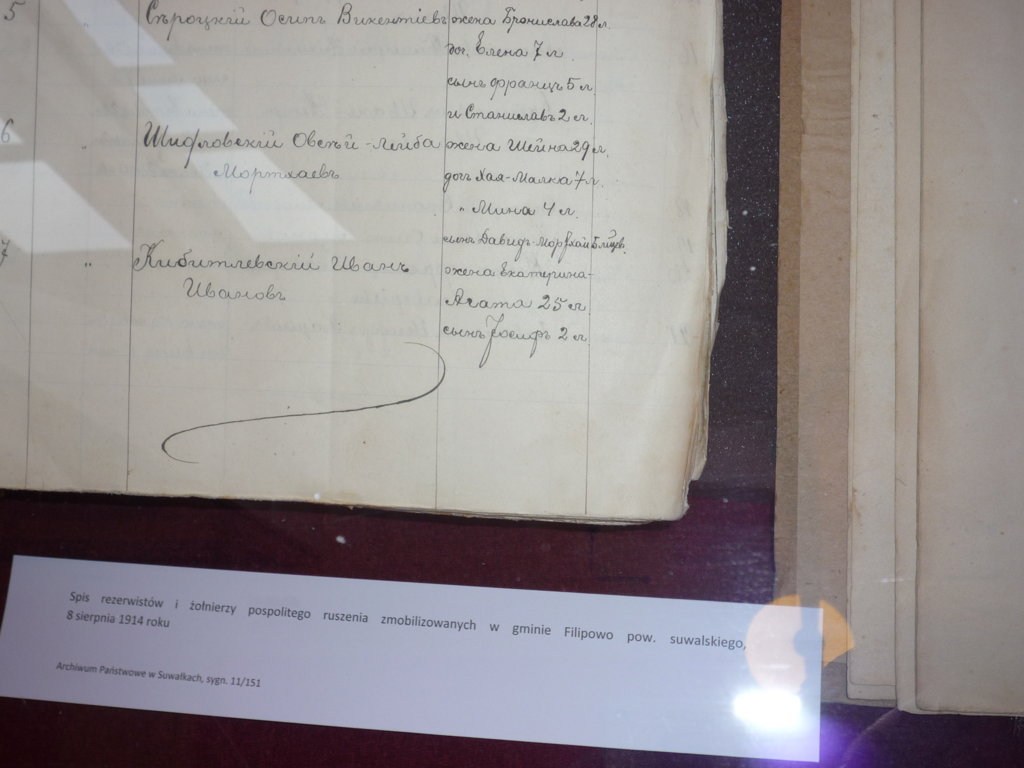 5 " Сѣроцкій Осипъ Викентіевъ жена Бронислава 28 л.
доч. Елена 7 л.
сынъ Францъ 5 л.
и Станиславъ 2 л.
6 " Шифловскій Овсѣй-Лейба жена Шейна 29 л.
Мортхаевъ дочь Хая-Малка 7 л.
" Мина 4 л.
сынъ Давидъ-Мортхай
7 " Иванъ жена Екатерина-
Ивановъ Агата 25 л
сынъ Іосифъ 2 л
Spis rezerwistów i żołnierzy pospolitego ruszenia zmobilizowanych w gminie Filipowo pow. suwalskiego,
8 sierpnia 1914 roku
Archiwum Państwowe w Suwałkach, sygn. 11/151